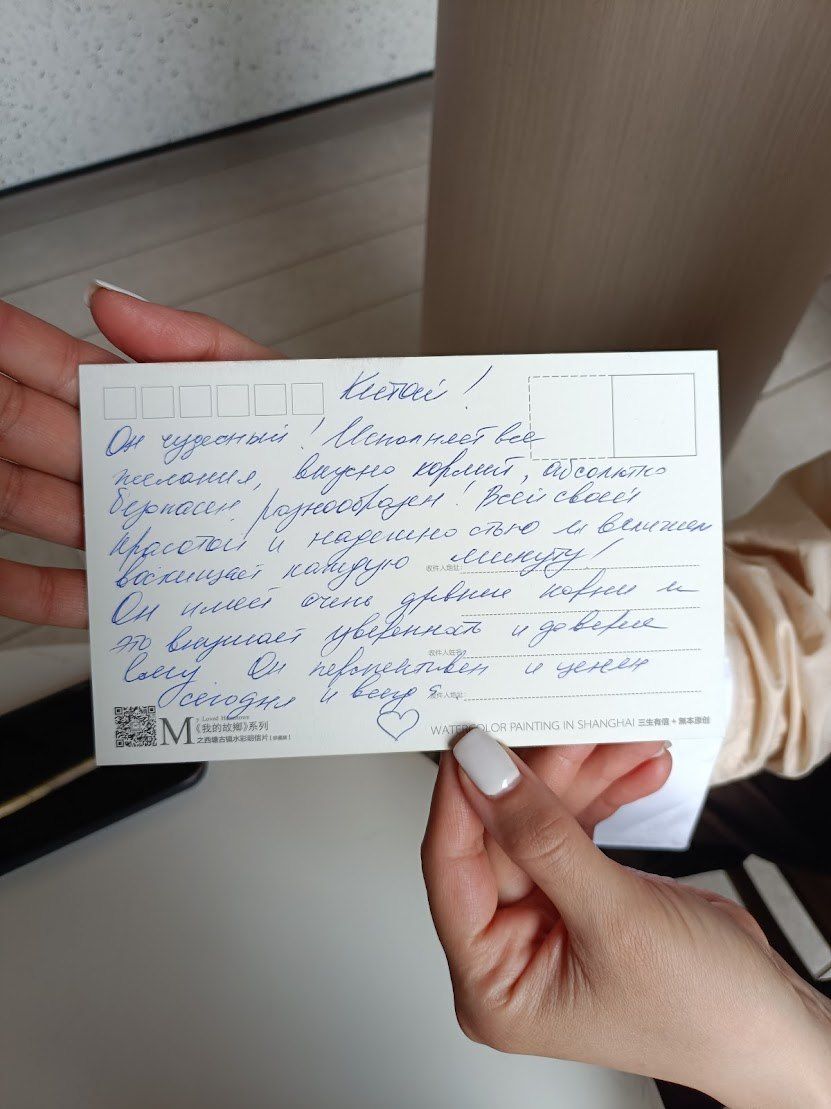 Китай!
Он чудесный! Исполняет все
желания, вкусно кормит, абсолютно
безопасен, разнообразен! Всей своей
красотой и надежностью и величием
восхищает каждую минуту!
收件人地址:
Он имеет очень древние корни и
это внушает уверенность и доверие
收件人姓名:
Ему. Он перспективен и ценен
сегодня и всегда
寄件人地址:
My Loved Hometown
《我的故鄉》系列
之西塘古镇水彩明信片
WATERCOLOR PAINTING IN SHANGHAI 三生有信 + 無本原创